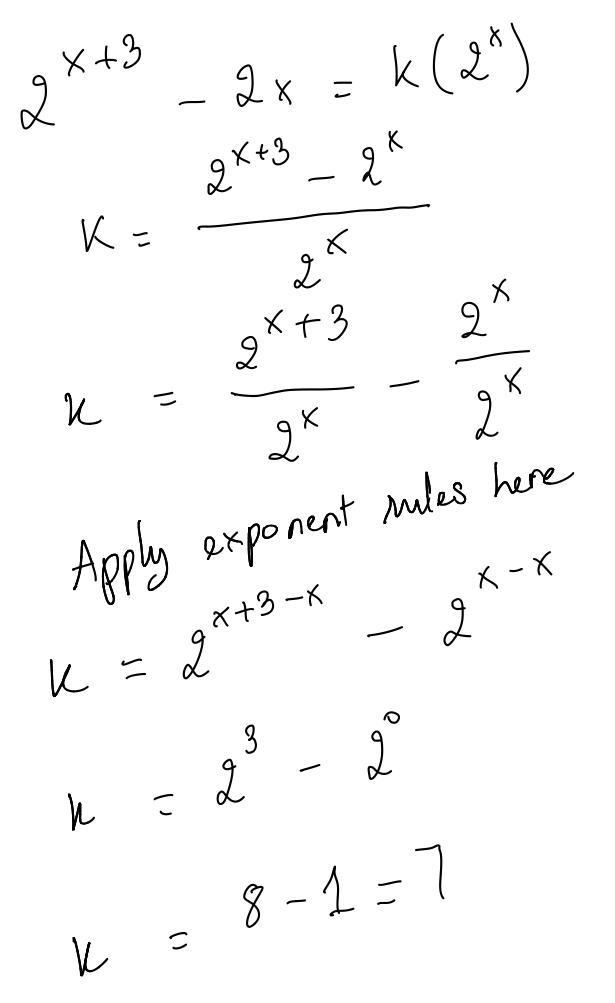 2^{x+3} - 2x = k(2^x)
K = \frac{2^{x+3} - 2^x}{2^x}
k = \frac{2^{x+3}}{2^x} - \frac{2^x}{2^x}
Apply exponent rules here
k = 2^{x+3-x} - 2^{x-x}
k = 2^3 - 2^0
k = 8 - 1 = 7